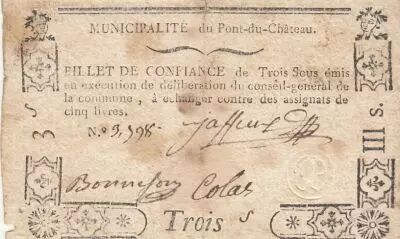 MUNICIPALITÉ du Pont-du-Château.
BILLET DE CONFIANCE de Trois Sous émis
en exécution de délibération du conseil-général de
la commune, à échanger contre des assignats de
cinq livres.
N.º 3,798.
3 S
III S.
Bonnefon Colas
Trois s